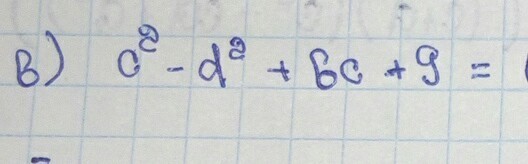 в) c² - d² + 6c + 9 = (